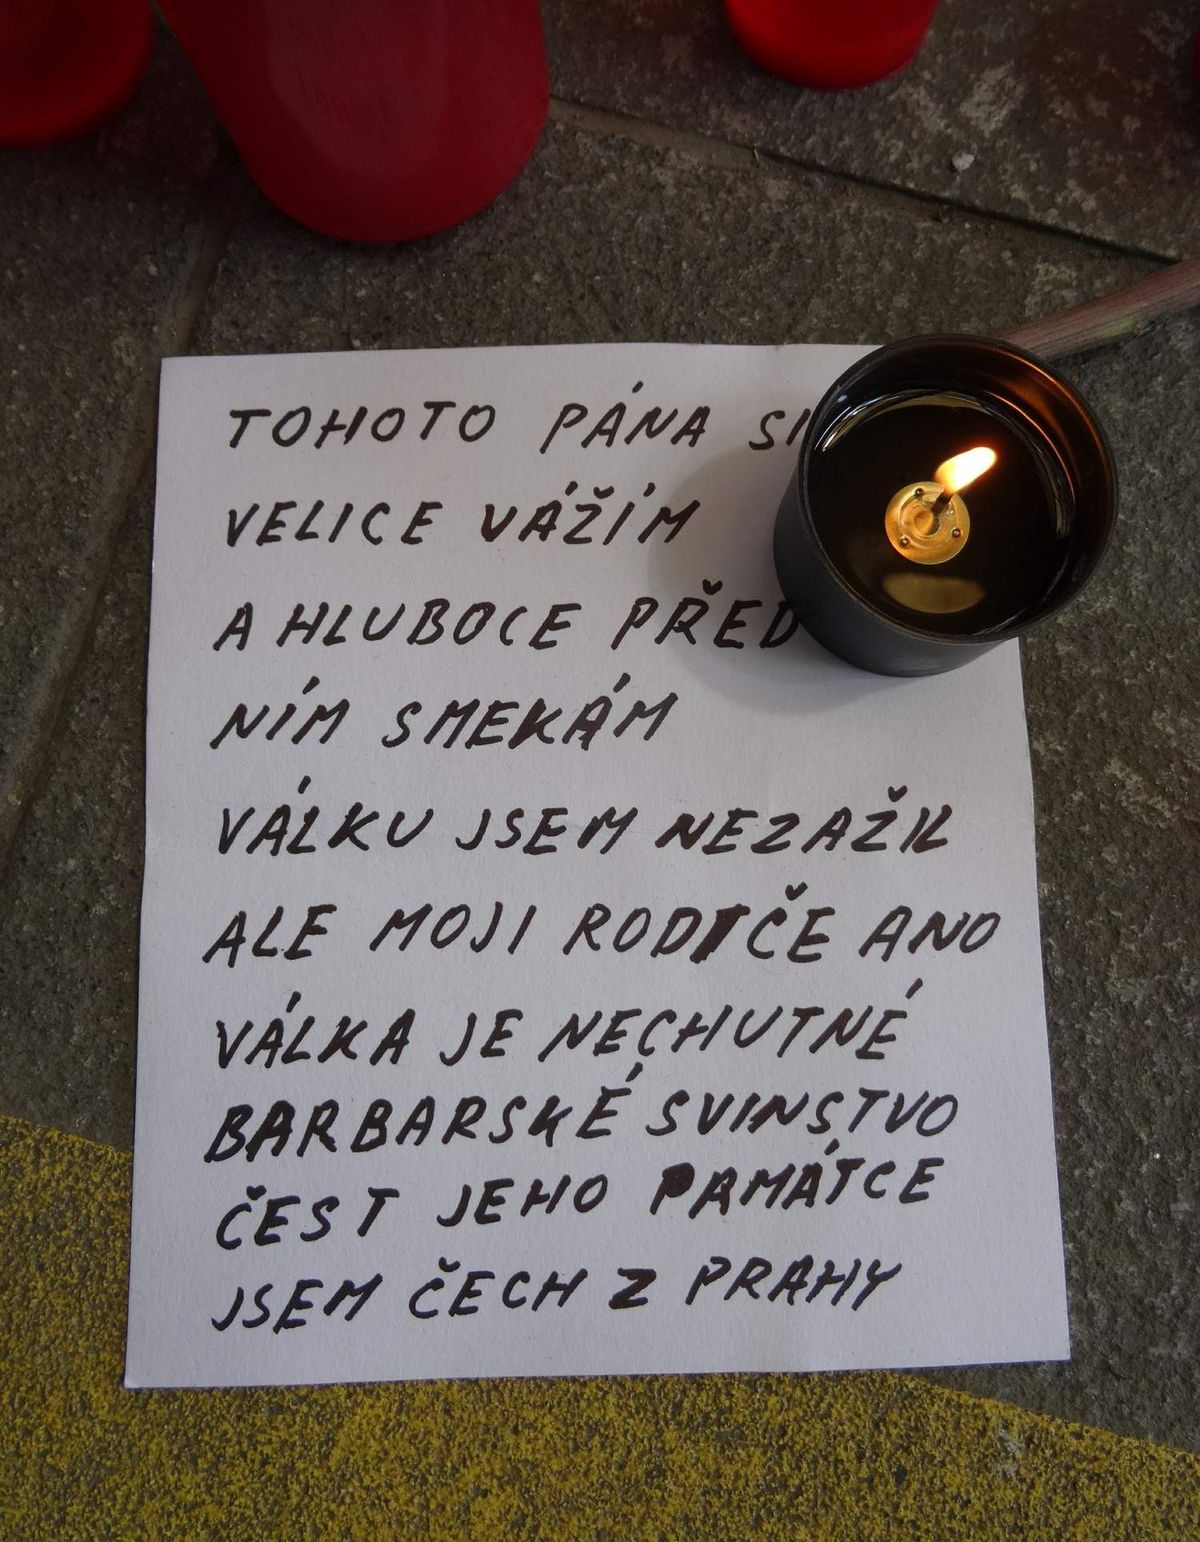 TOHOTO PÁNA SI
VELICE VÁŽÍM
A HLUBOCE PŘED
NÍM SMEKÁM
VÁLKU JSEM NEZAŽIL
ALE MOJI RODIČE ANO
VÁLKA JE NECHUTNÉ
BARBARSKÉ SVINSTVO
ČEST JEHO PAMÁTCE
JSEM ČECH Z PRAHY